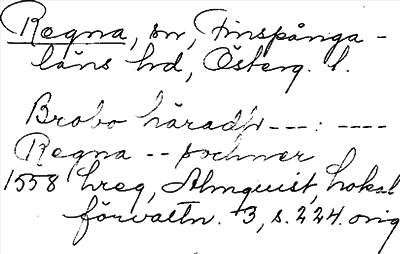 Regna, sn, Finspånga-
läns hd, Österg. l.
Brobo häradh ---: ----
Regna -- sochner
1558 hreg, Almquist, Lokal
förvaltn. 3, s. 224. orig